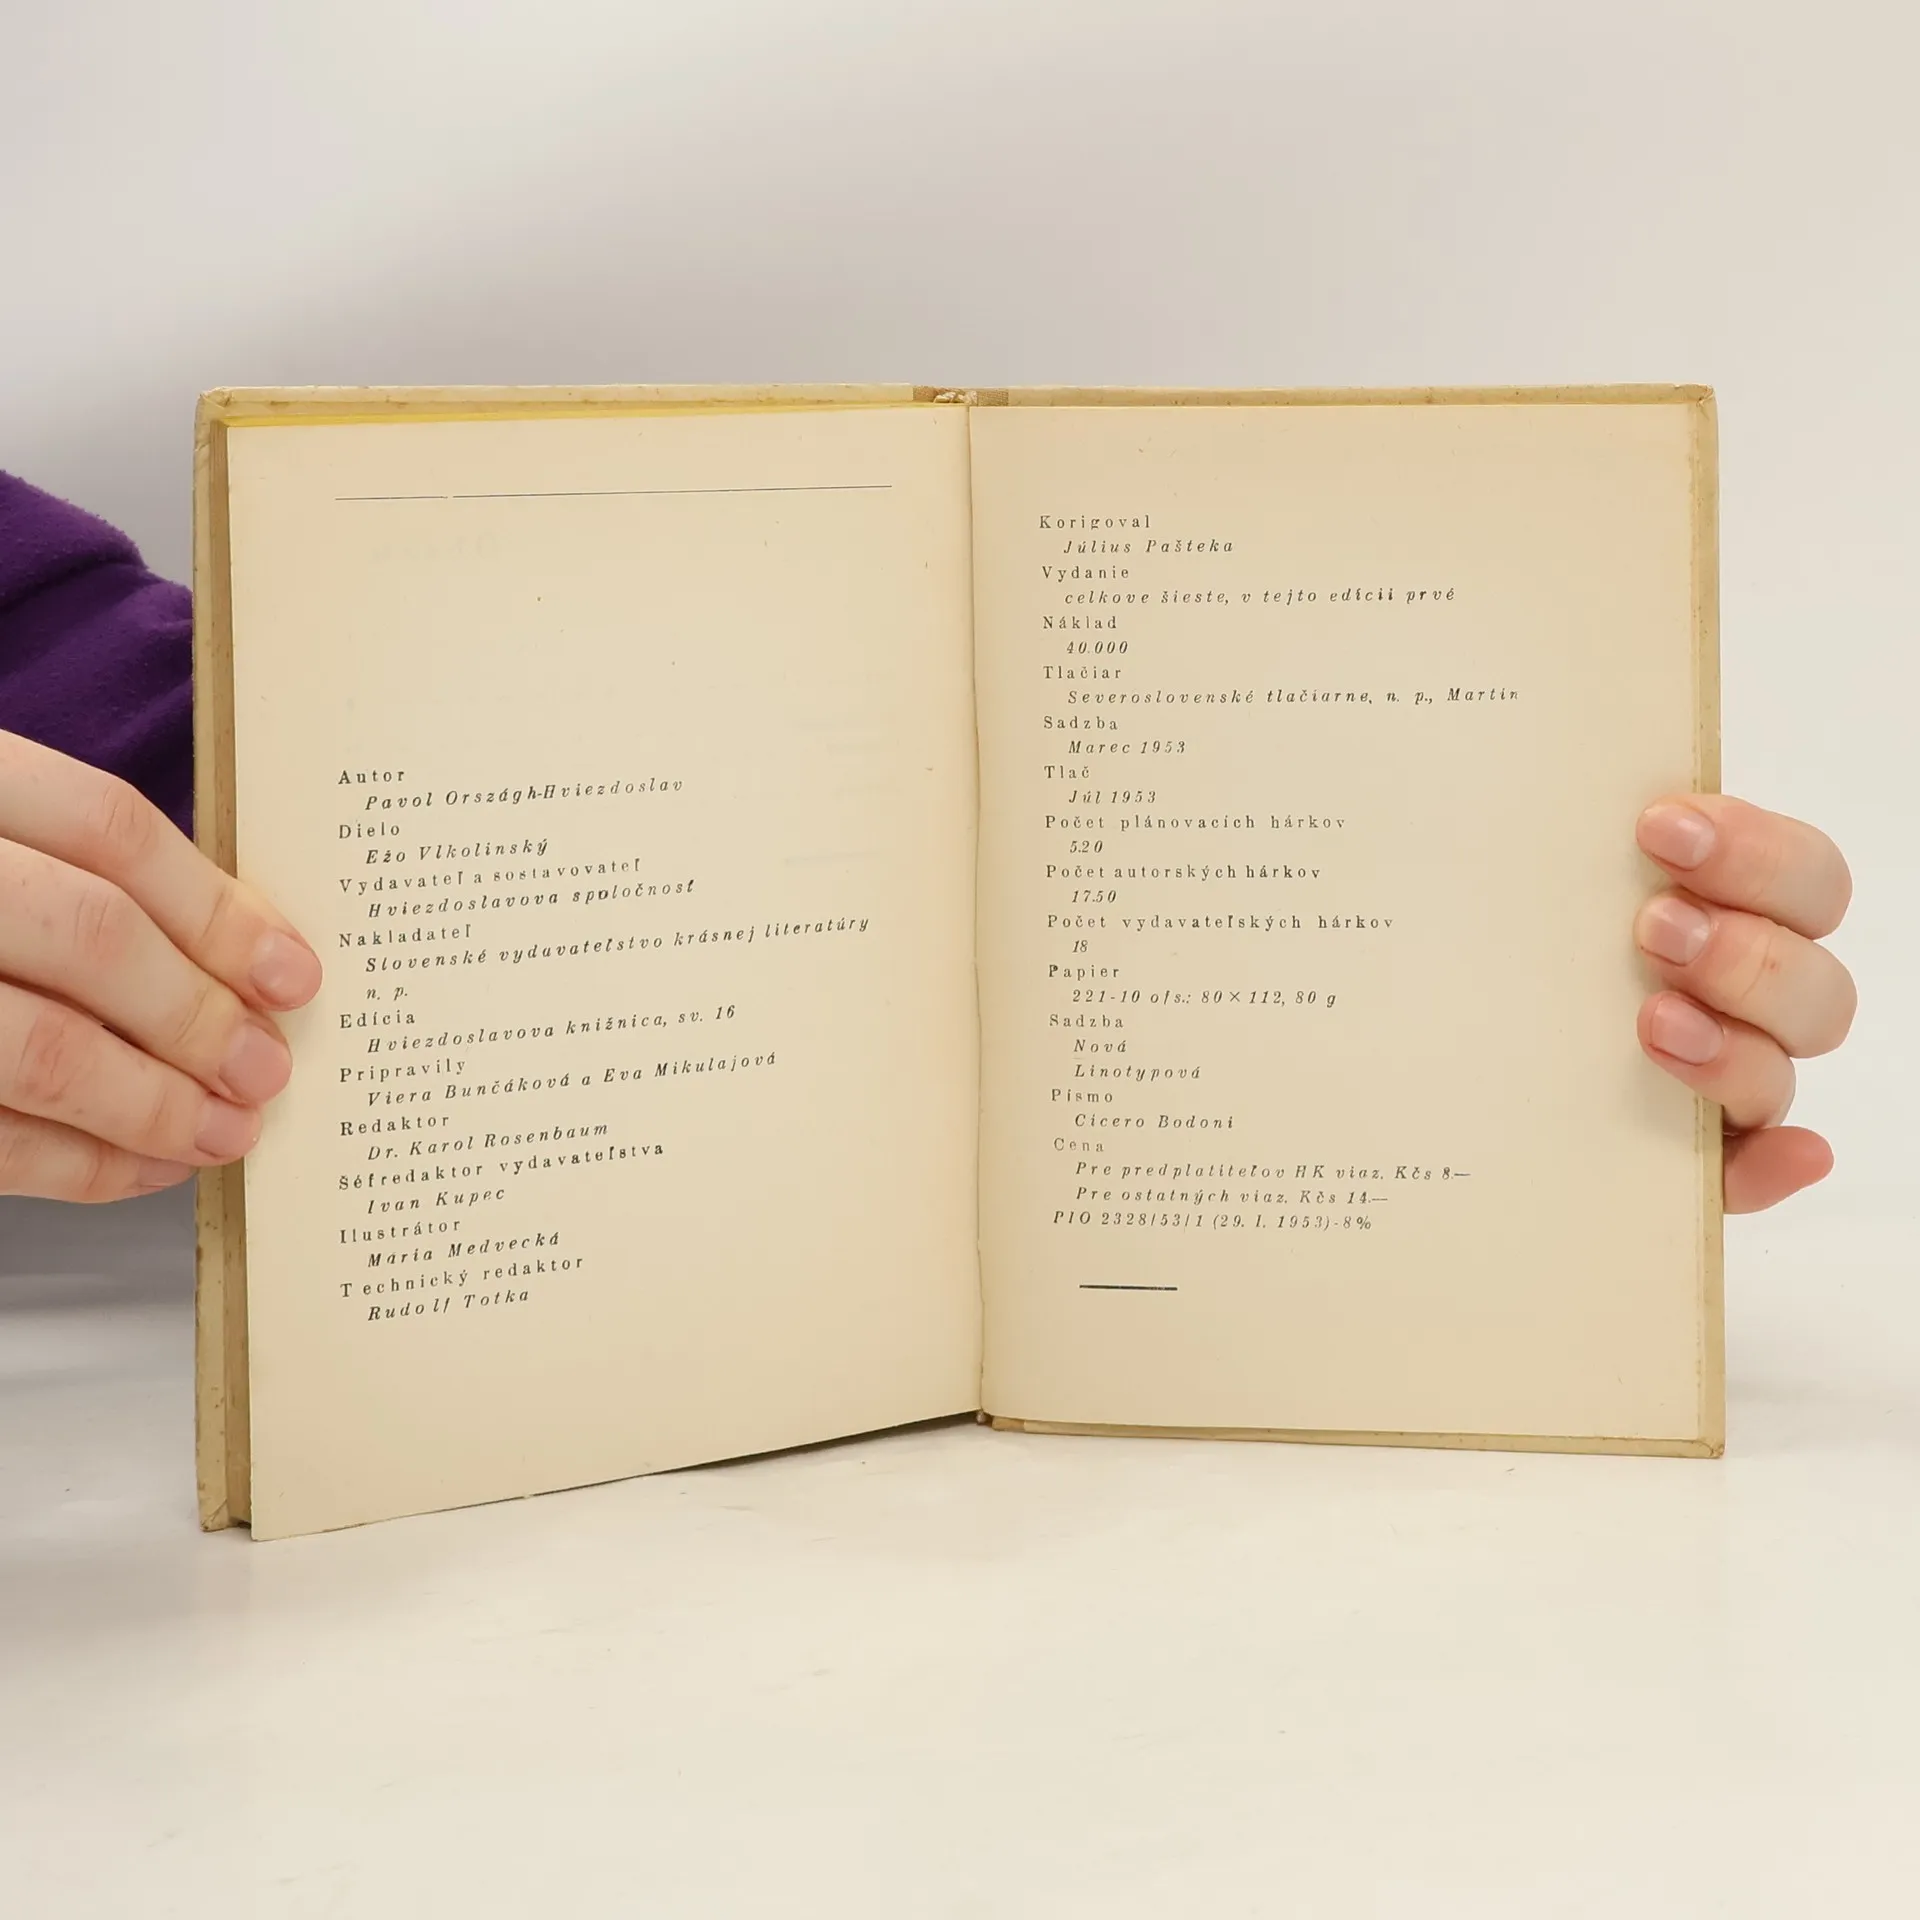 Autor
Pavol Országh-Hviezdoslav
Dielo
Ežo Vlkolinský
Vydavateľ a sostavovateľ
Hviezdoslavova spoločnosť
Nakladateľ
Slovenské vydavateľstvo krásnej literatúry
n. p.
Edícia
Hviezdoslavova knižnica, sv. 16
Pripravily
Viera Bunčáková a Eva Mikulajová
Redaktor
Dr. Karol Rosenbaum
Šéfredaktor vydavateľstva
Ivan Kupec
Ilustrátor
Mária Medvecká
Technický redaktor
Rudolf Totka
Korigoval
Július Pašteka
Vydanie
celkove šieste, v tejto edícii prvé
Náklad
40.000
Tlačiar
Severoslovenské tlačiarne, n. p., Martin
Sadzba
Marec 1953
Tlač
Júl 1953
Počet plánovacích hárkov
5.20
Počet autorských hárkov
17.50
Počet vydavateľských hárkov
18
Papier
221-10 ofs.: 80×112, 80 g
Sadzba
Nová
Linotypová
Písmo
Cicero Bodoni
Cena
Pre predplatiteľov HK viaz. Kčs 8.—
Pre ostatných viaz. Kčs 14.—
PIO 2328/53/1 (29. I. 1953)-8%